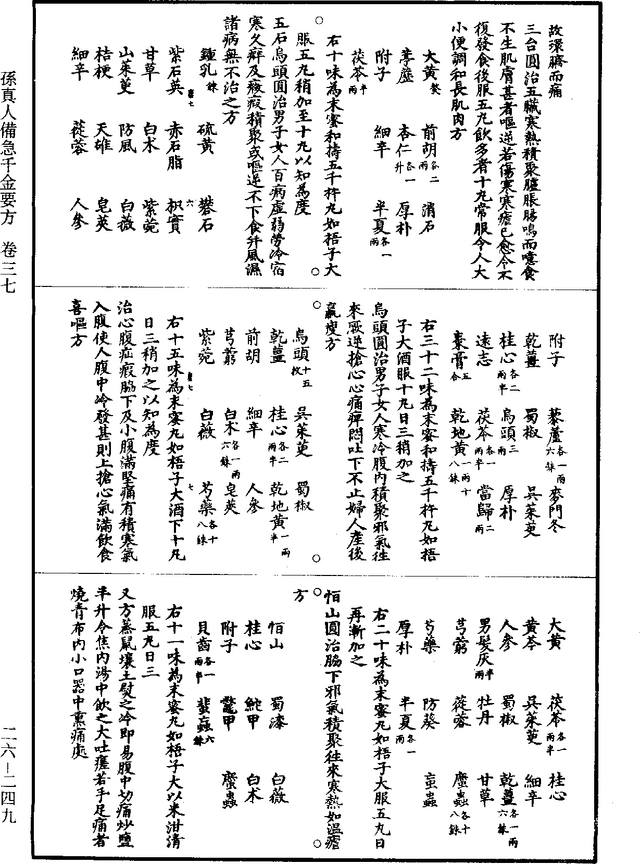 故深臍而痛
三台圓治五臟寒熱積聚臚脹腸鳴而噫食
不生肌膚甚者嘔逆若傷寒寒瘧已愈令不
復發食後服五丸飲多者十丸常服令人大
小便調和長肌肉方
大黃熬 前胡各二兩 消石
葶藶 杏仁各一升 厚朴
附子 細辛 半夏各一兩
茯苓半兩
右十味為末蜜和擣五千杵丸如梧子大
服五丸稍加至十丸以知為度
五石烏頭圓治男子女人百病虛弱勞冷宿
寒久癖及癥瘕積聚或嘔逆不下食并風濕
諸病無不治之方
鍾乳銖 硫黃 礬石
紫石英 赤石脂 枳實六
甘草 白朮 紫菀
山茱萸 防風 白薇
桔梗 天雄 皂莢
細辛 蓯蓉 人參
附子 藜蘆各一兩六銖 麥門冬
乾薑 蜀椒 吳茱萸
桂心各二兩半 烏頭三兩 厚朴
遠志 茯苓各一兩半 當歸二兩
棗膏五合 乾地黃一兩十八銖
右三十二味為末蜜和擣五千杵丸如梧
子大酒服十丸日三稍加之
烏頭圓治男子女人寒冷腹內積聚邪氣往
來厥逆搶心心痛痺悶吐下不止婦人產後
羸瘦方
烏頭十五枚 吳茱萸 蜀椒
乾薑 桂心各二兩半 乾地黃一兩半
前胡 細辛 人參
芎藭 白朮各一兩六銖 皂莢
紫菀 白薇 芍藥各十八銖
右十五味為末蜜丸如梧子大酒下十丸
日三稍加之以知為度
治心腹疝瘕脇下及小腹滿堅痛有積寒氣
入腹使人腹中冷發甚則上搶心氣滿飲食
喜嘔方
大黃 茯苓各一兩半 桂心
黃芩 吳茱萸 細辛
人參 蜀椒 乾薑各一兩六銖
男髮灰半兩 牡丹 甘草
芎藭 蓯蓉 䗪蟲各十八銖
芍藥 防葵 虻蟲
厚朴 半夏各一兩
右二十味為末蜜丸如梧子大服五丸日
再漸加之
恒山圓治脇下邪氣積聚往來寒熱如溫瘧
方
恒山 蜀漆 白薇
桂心 鮀甲 白朮
附子 鼈甲 䗪蟲
貝齒各一兩半 蜚蝱六銖
右十一味為末蜜丸如梧子大以米泔清
服五丸日三
又方蒸鼠壤土熨之冷即易腹中切痛炒鹽
半升令焦內湯中飲之大吐瘥若手足痛者
燒青布內小口器中熏痛處
孫真人備急千金要方 卷三七
二六-二四九